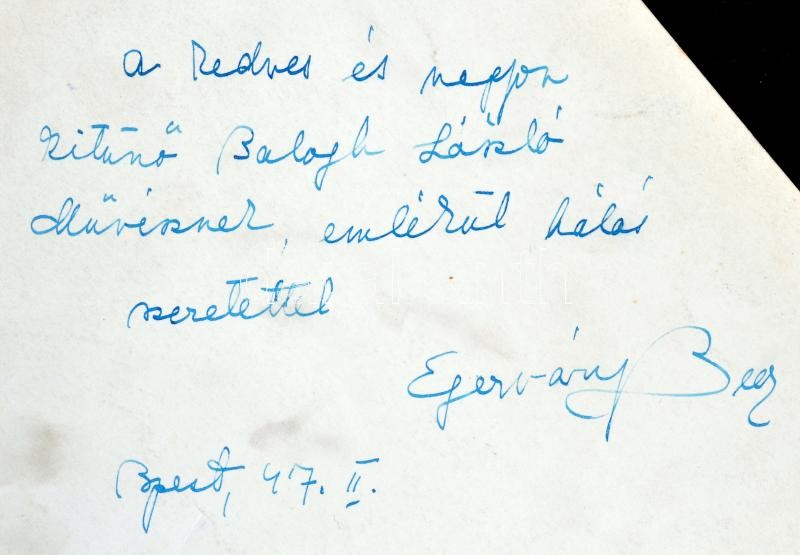 a kedves és nagyon
kitünő Balogh László
Művésznek, emlékül hálás
szeretettel
Egerváry
Bpest, 47. II.